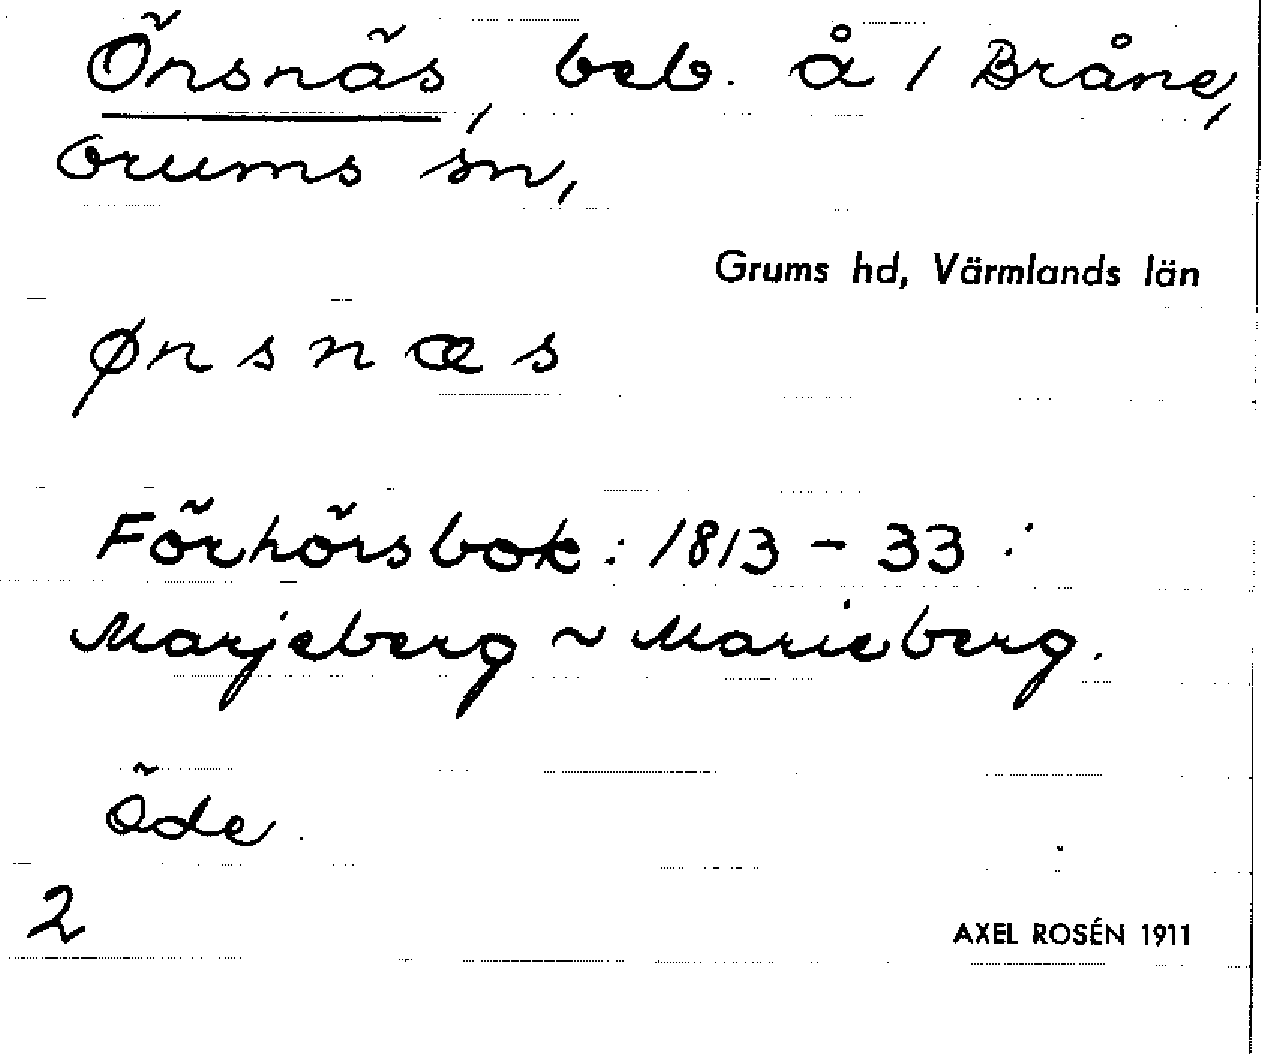 Önsnäs, beb. å 1 Bråne,
Grums sn,
Grums hd, Värmlands län
ønsnæs
Förhörsbok: 1813 - 33:
Marjeberg ~ Marieberg.
Öde.
2
AXEL ROSÉN 1911